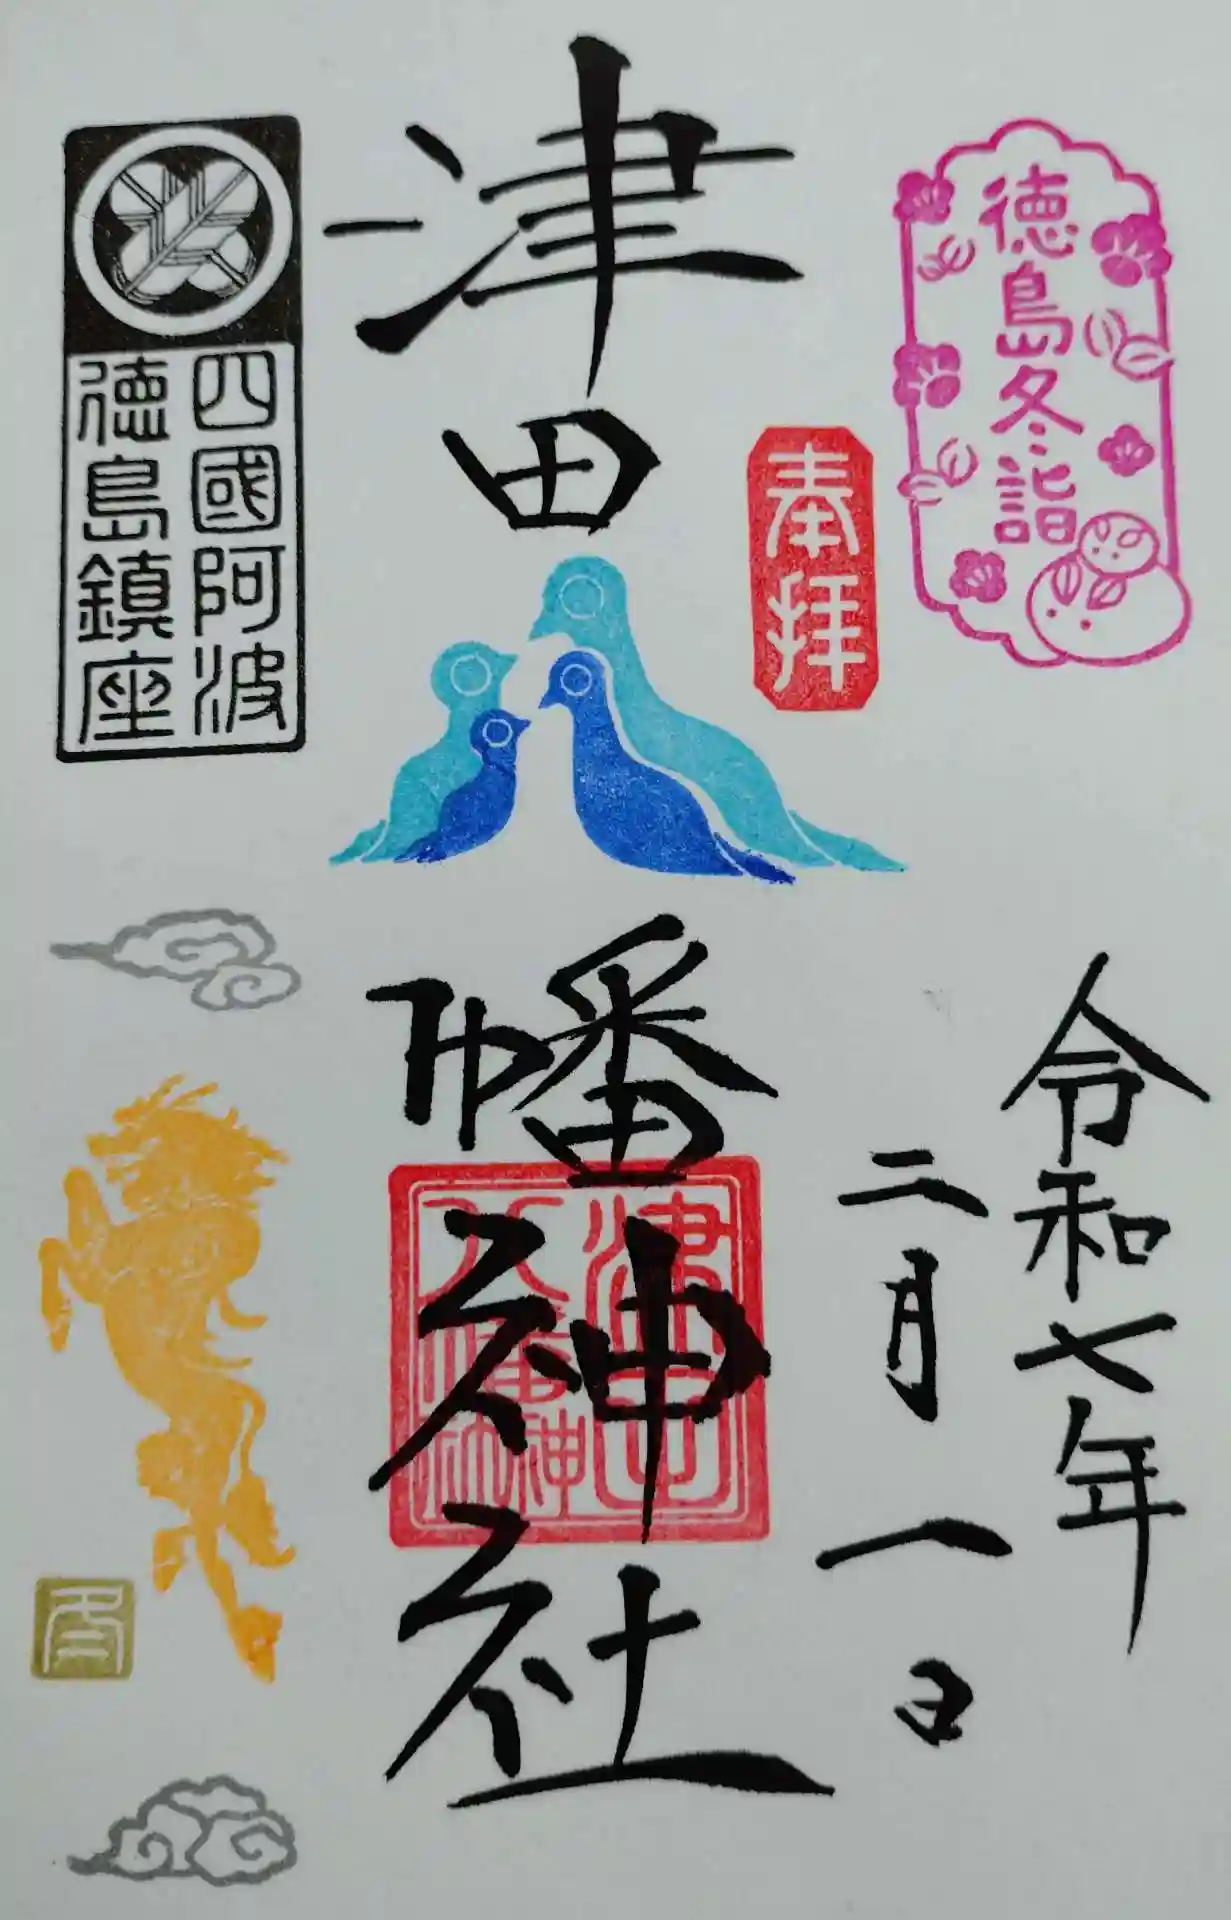 徳島冬詣
奉拝
令和七年
二月一日
津田
幡神社
津田
八幡
神社
四國阿波
徳島鎮座